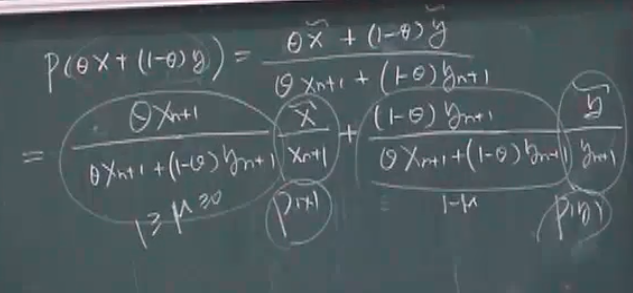 P(θx + (1-θ)y) = \frac{θ\tilde{x} + (1-θ)\tilde{y}}{θx_{n+1} + (1-θ)y_{n+1}}
= \frac{θx_{n+1}}{θx_{n+1} + (1-θ)y_{n+1}} \frac{\tilde{x}}{x_{n+1}} + \frac{(1-θ)y_{n+1}}{θx_{n+1} + (1-θ)y_{n+1}} \frac{\tilde{y}}{y_{n+1}}
1 ≥ μ ≥ 0 P(x) 1-μ P(y)